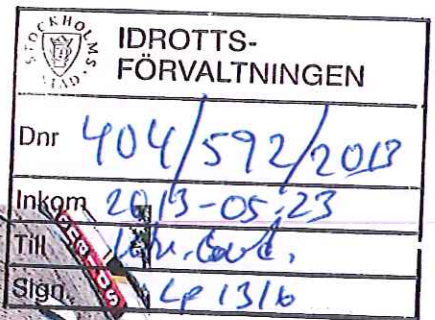 STOCKHOLMS STAD
IDROTTS-
FÖRVALTNINGEN
Dnr 404/592/2013
Inkom 2013-05-23
Till
Sign. LP 13/6